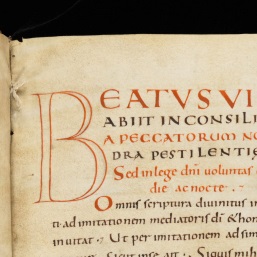 BEATUS VI
ABIIT IN CONSILI
A PECCATORUM NO
DRA PESTILENTIE
Sed in lege dñi voluntas
die ac nocte.
Omnis scriptura divinitus in
ti· ad imitationem mediatoris dī &ho
invitat· Ut per imitationem ad sim